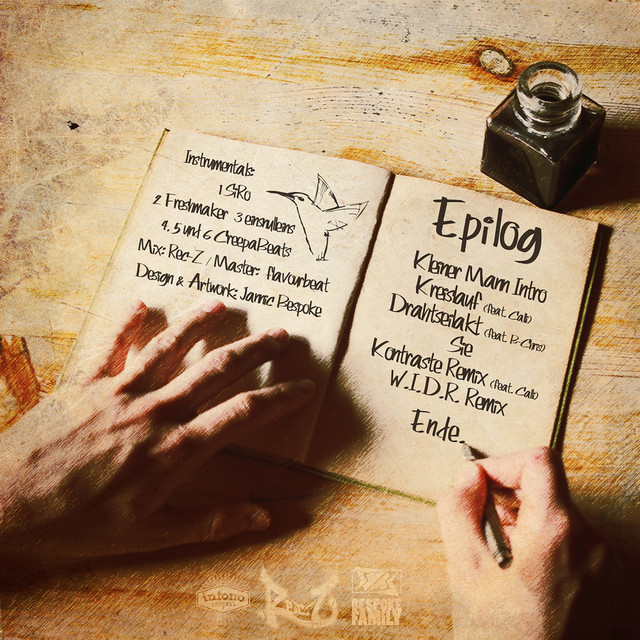 Instrumentals:
1 SiRo
2 Freshmaker 3 einsnulleins
4, 5 und 6 CreepaBeats
Mix: Rec-Z / Master: flavourbeat
Design & Artwork: Jannic Bespoke
Epilog
Kleiner Mann Intro
Kreislauf (feat. Cali)
Drahtseilakt (feat. B-Chris)
Sie
Kontraste Remix (feat. Cali)
W.I.D.R. Remix
Ende.
intono
Rec-Z
FAMILY